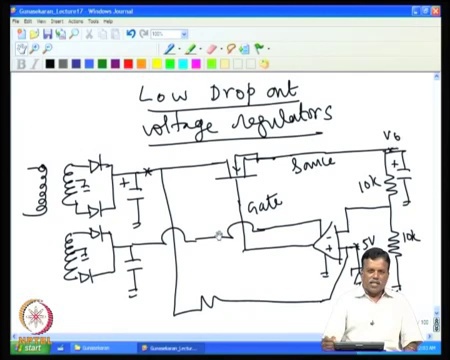 Gunasekaran_Lecture17 - Windows Journal
File Edit View Insert Actions Tools Help
100%
B I
Low Drop out
voltage regulators
V0
Source
10k
Gate
5V
10k
NPTEL
start
Gunasekaran
Gunasekaran_Lectu...